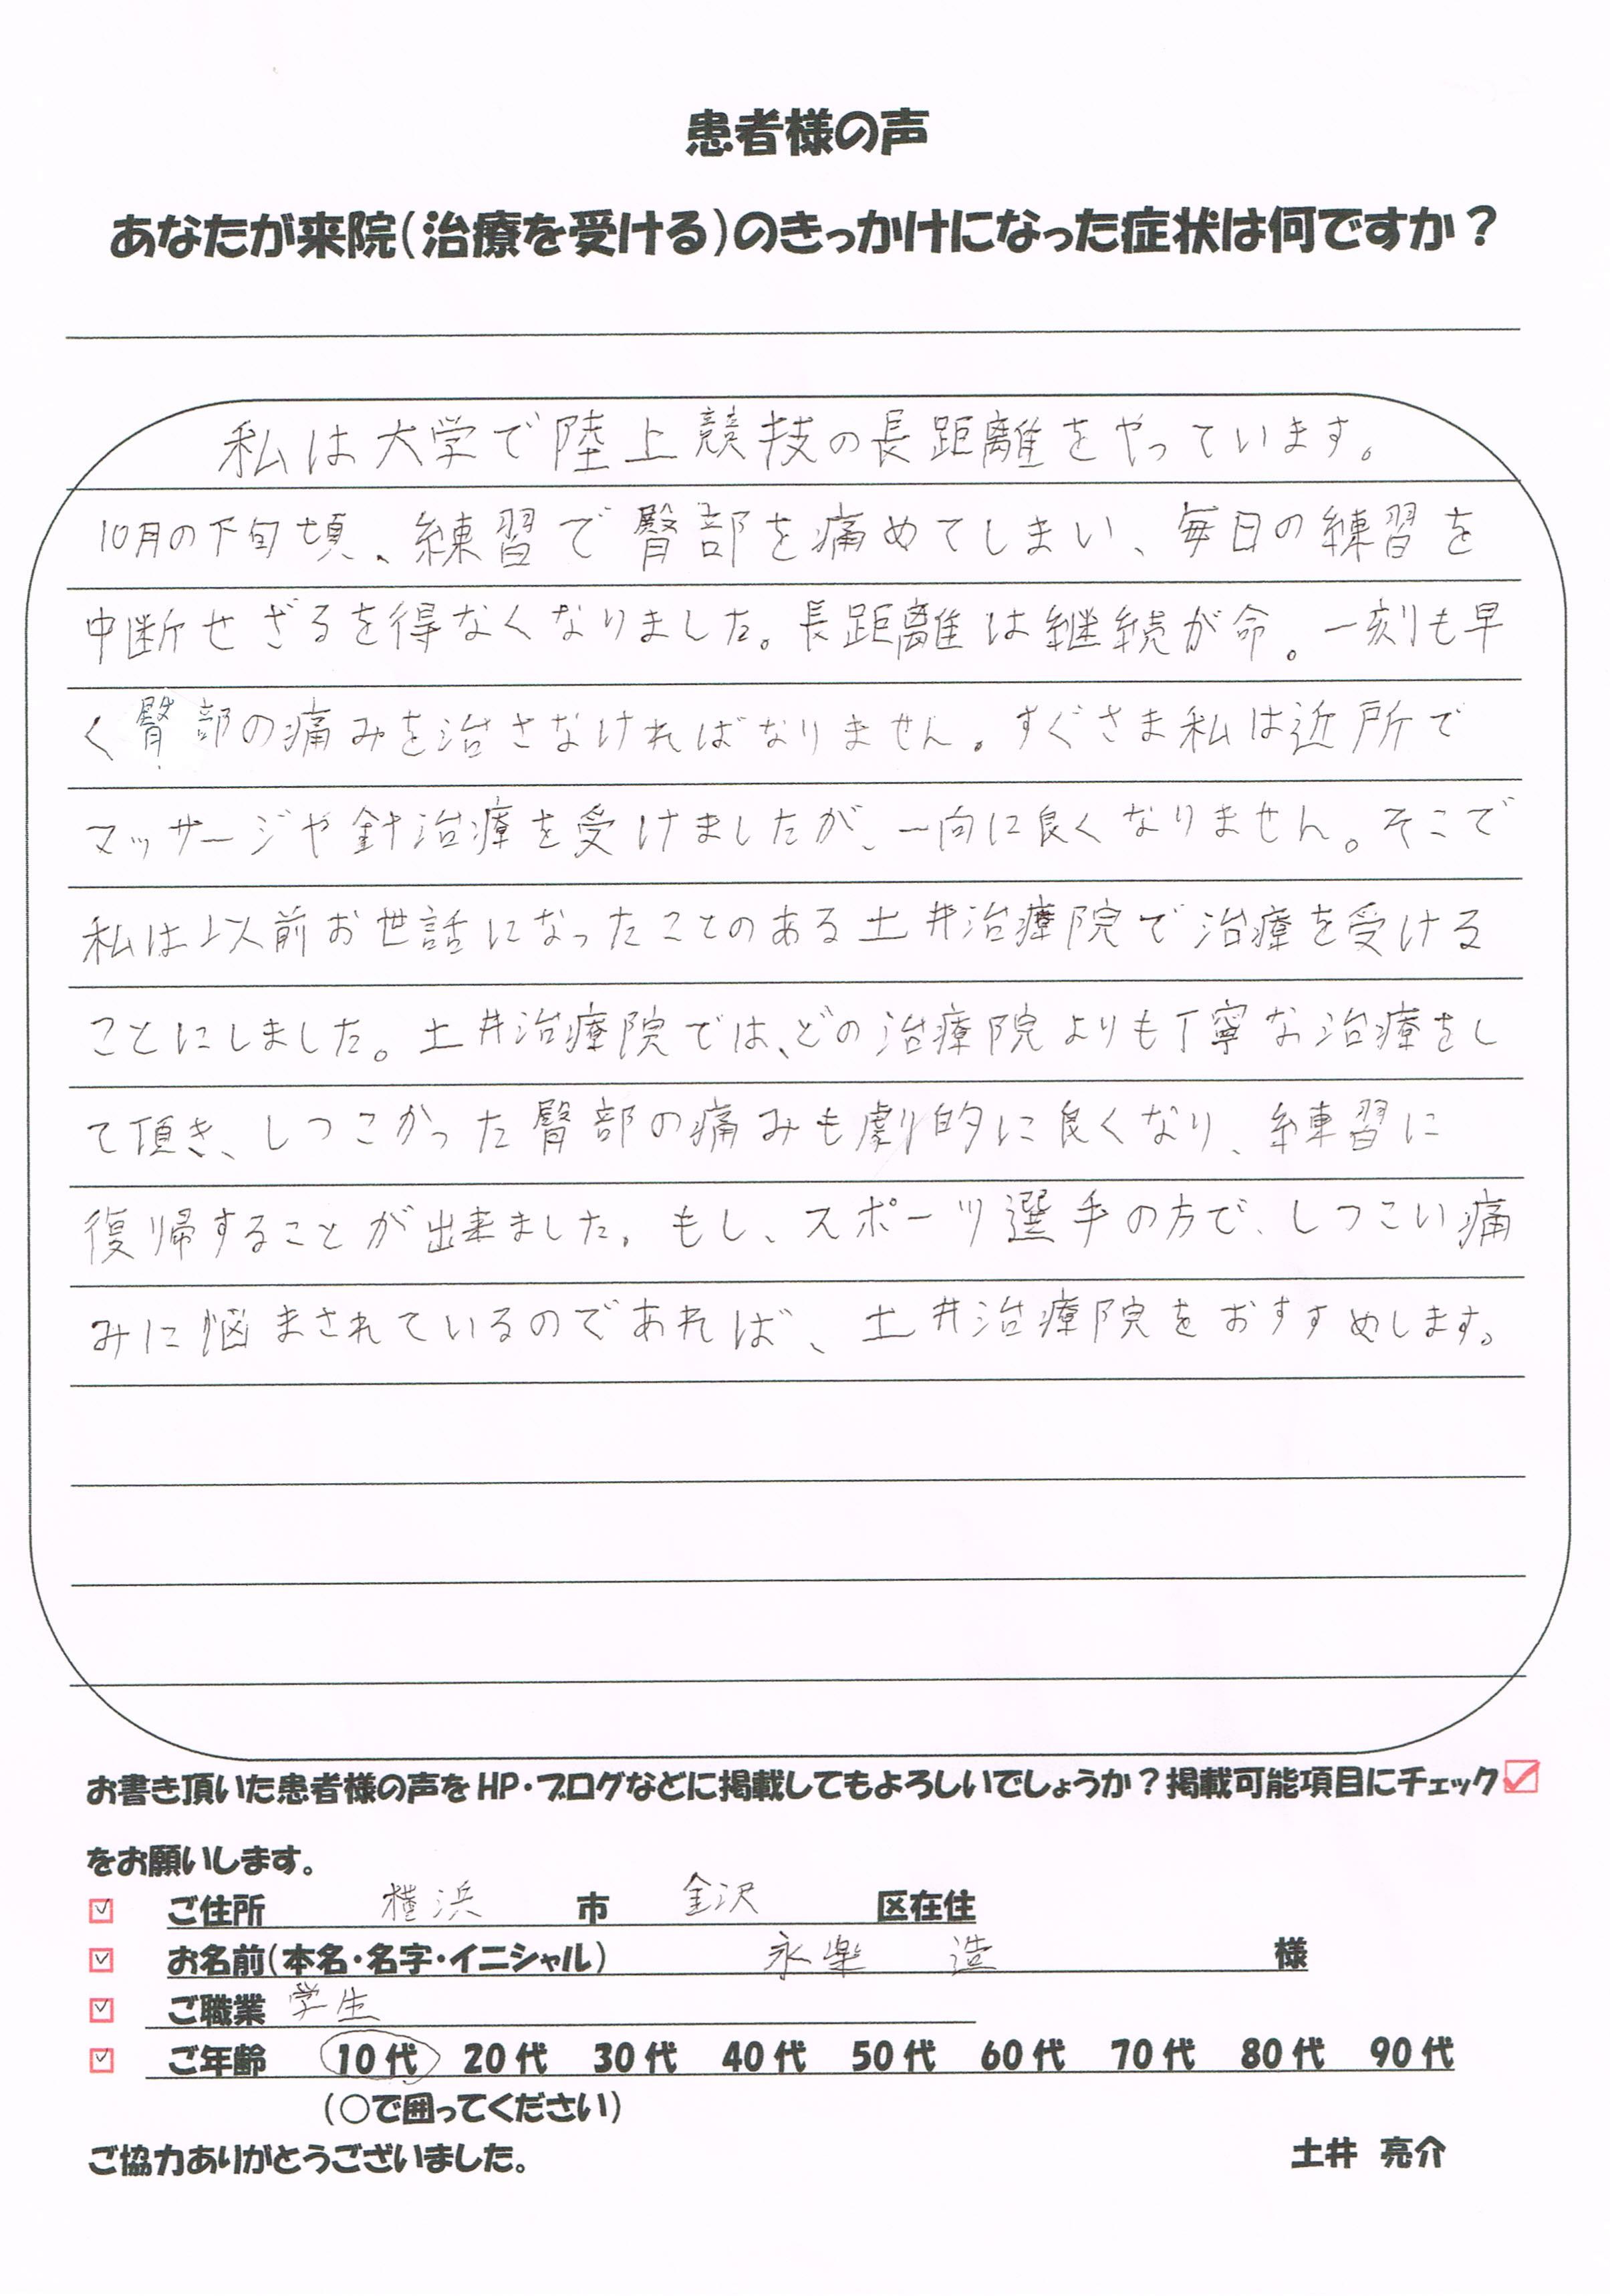 患者様の声
あなたが来院(治療を受ける)のきっかけになった症状は何ですか？
私は大学で陸上競技の長距離をやっています。
10月の下旬頃、練習で臀部を痛めてしまい、毎日の練習を
中断せざるを得なくなりました。長距離は継続が命。一刻も早
く臀部の痛みを治さなければなりません。すぐさま私は近所で
マッサージや針治療を受けましたが、一向に良くなりません。そこで
私は以前お世話になったことのある土井治療院で治療を受ける
ことにしました。土井治療院では、どの治療院よりも丁寧な治療をし
て頂き、しつこかった臀部の痛みも劇的に良くなり、練習に
復帰することが出来ました。もし、スポーツ選手の方で、しつこい痛
みに悩まされているのであれば、土井治療院をおすすめします。
お書き頂いた患者様の声をHP・ブログなどに掲載してもよろしいでしょうか？掲載可能項目にチェック☑
をお願いします。
☑ ご住所 横浜 市 金沢 区在住
☑ お名前(本名・名字・イニシャル) 永楽 造 様
☑ ご職業 学生
☑ ご年齢 10代 20代 30代 40代 50代 60代 70代 80代 90代
(○で囲ってください)
ご協力ありがとうございました。 土井 亮介